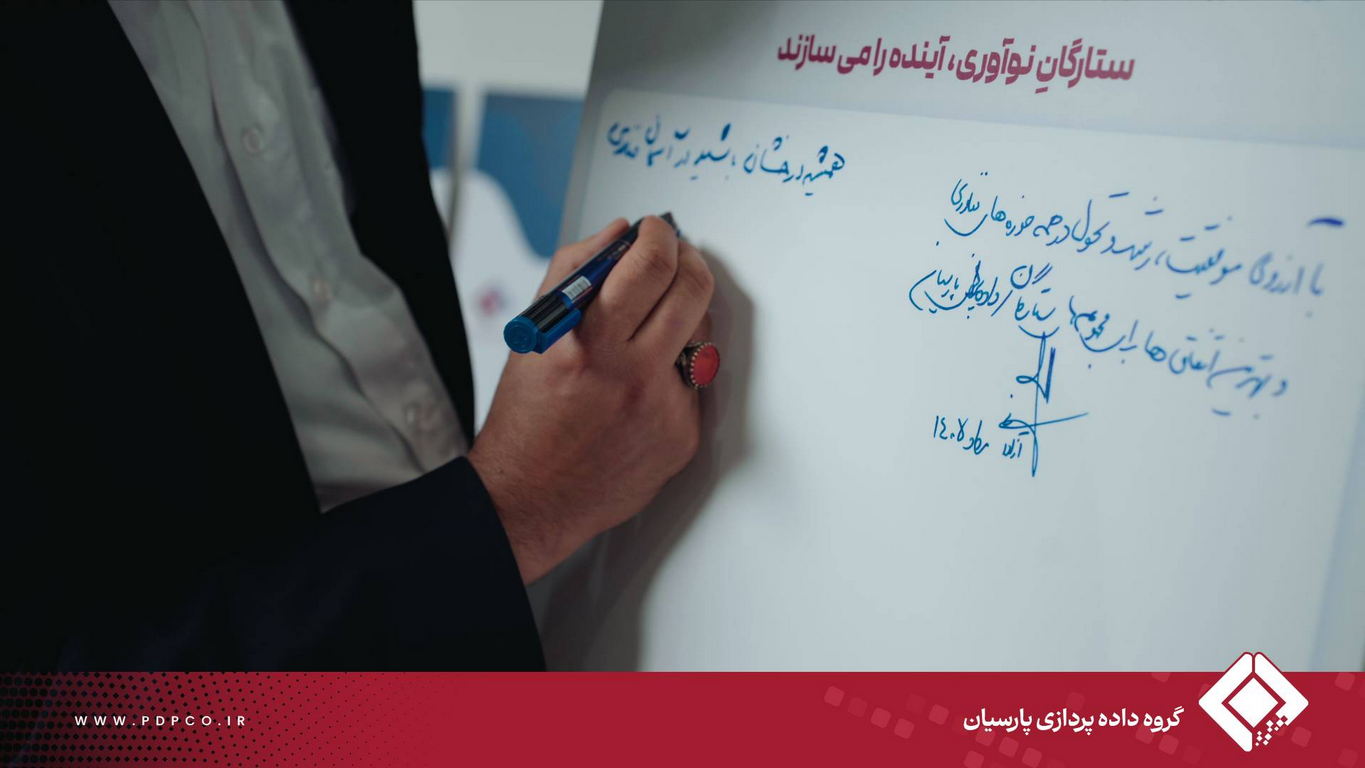 ستارگانِ نوآوری، آینده را می سازند
با آرزوی موفقیت، رشد و تحول در همه حوزه های فناوری
و بهترین اتفاق ها برای مجموعه ستارگان داده پردازی پارسیان
مرداد ۱٤۰۴
همیشه درخشان باشید در آسمان
گروه داده پردازی پارسیان
WWW.PDPCO.IR